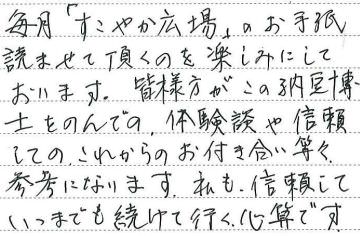 毎月「すこやか広場」のお手紙
読ませて頂くのを楽しみにして
おります。皆様方がこの納豆博
士をのんでの、体験談や信頼
しての、これからのお付き合い等々、
参考になります。私も、信頼して
いつまでも続けて行く、心算です